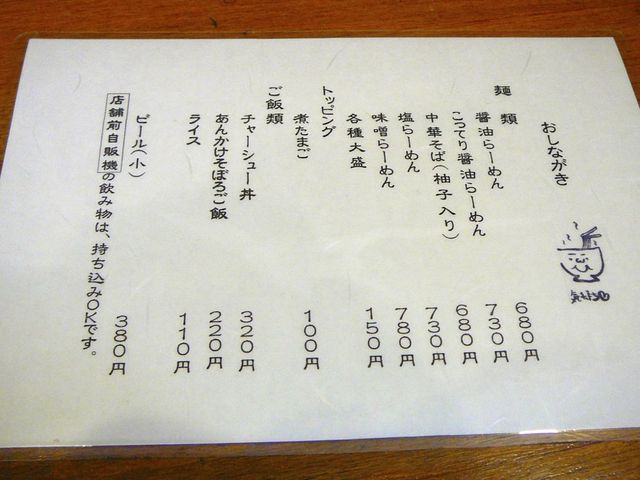 おしながき
麺類
醤油らーめん 680円
こってり醤油らーめん 730円
中華そば(柚子入り) 680円
塩らーめん 730円
味噌らーめん 780円
各種大盛 150円
トッピング
煮たまご 100円
ご飯類
チャーシュー丼 320円
あんかけそぼろご飯 220円
ライス 110円
ビール(小) 380円
店舗前自販機の飲み物は、持ち込みOKです。